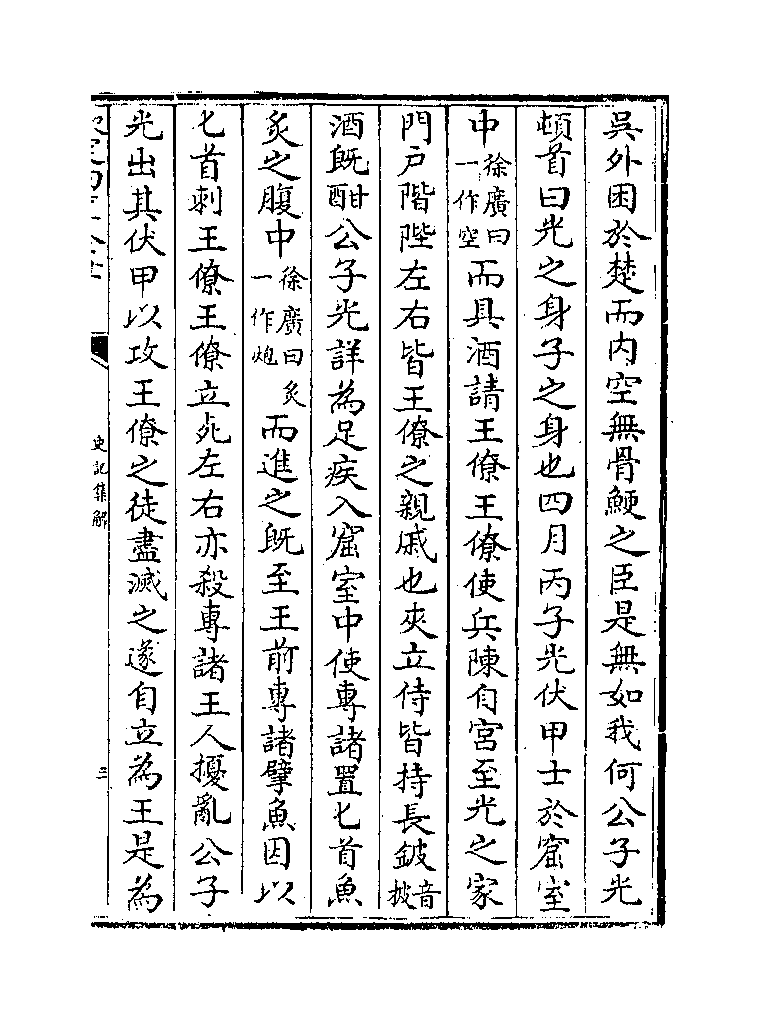 吳外困於楚而内空無骨鯁之臣是無如我何公子光
頓首曰光之身子之身也四月丙子光伏甲士於窟室
中徐廣曰一作空而具酒請王僚王僚使兵陳自宮至光之家
門戸階陛左右皆王僚之親戚也夾立侍皆持長鈹音披
酒既酣公子光詳為足疾入窟室中使專諸置匕首魚
炙之腹中徐廣曰炙一作炮而進之既至王前專諸擘魚因以
匕首刺王僚王僚立死左右亦殺專諸王人擾亂公子
光出其伏甲以攻王僚之徒盡滅之遂自立為王是為
史記集解
三